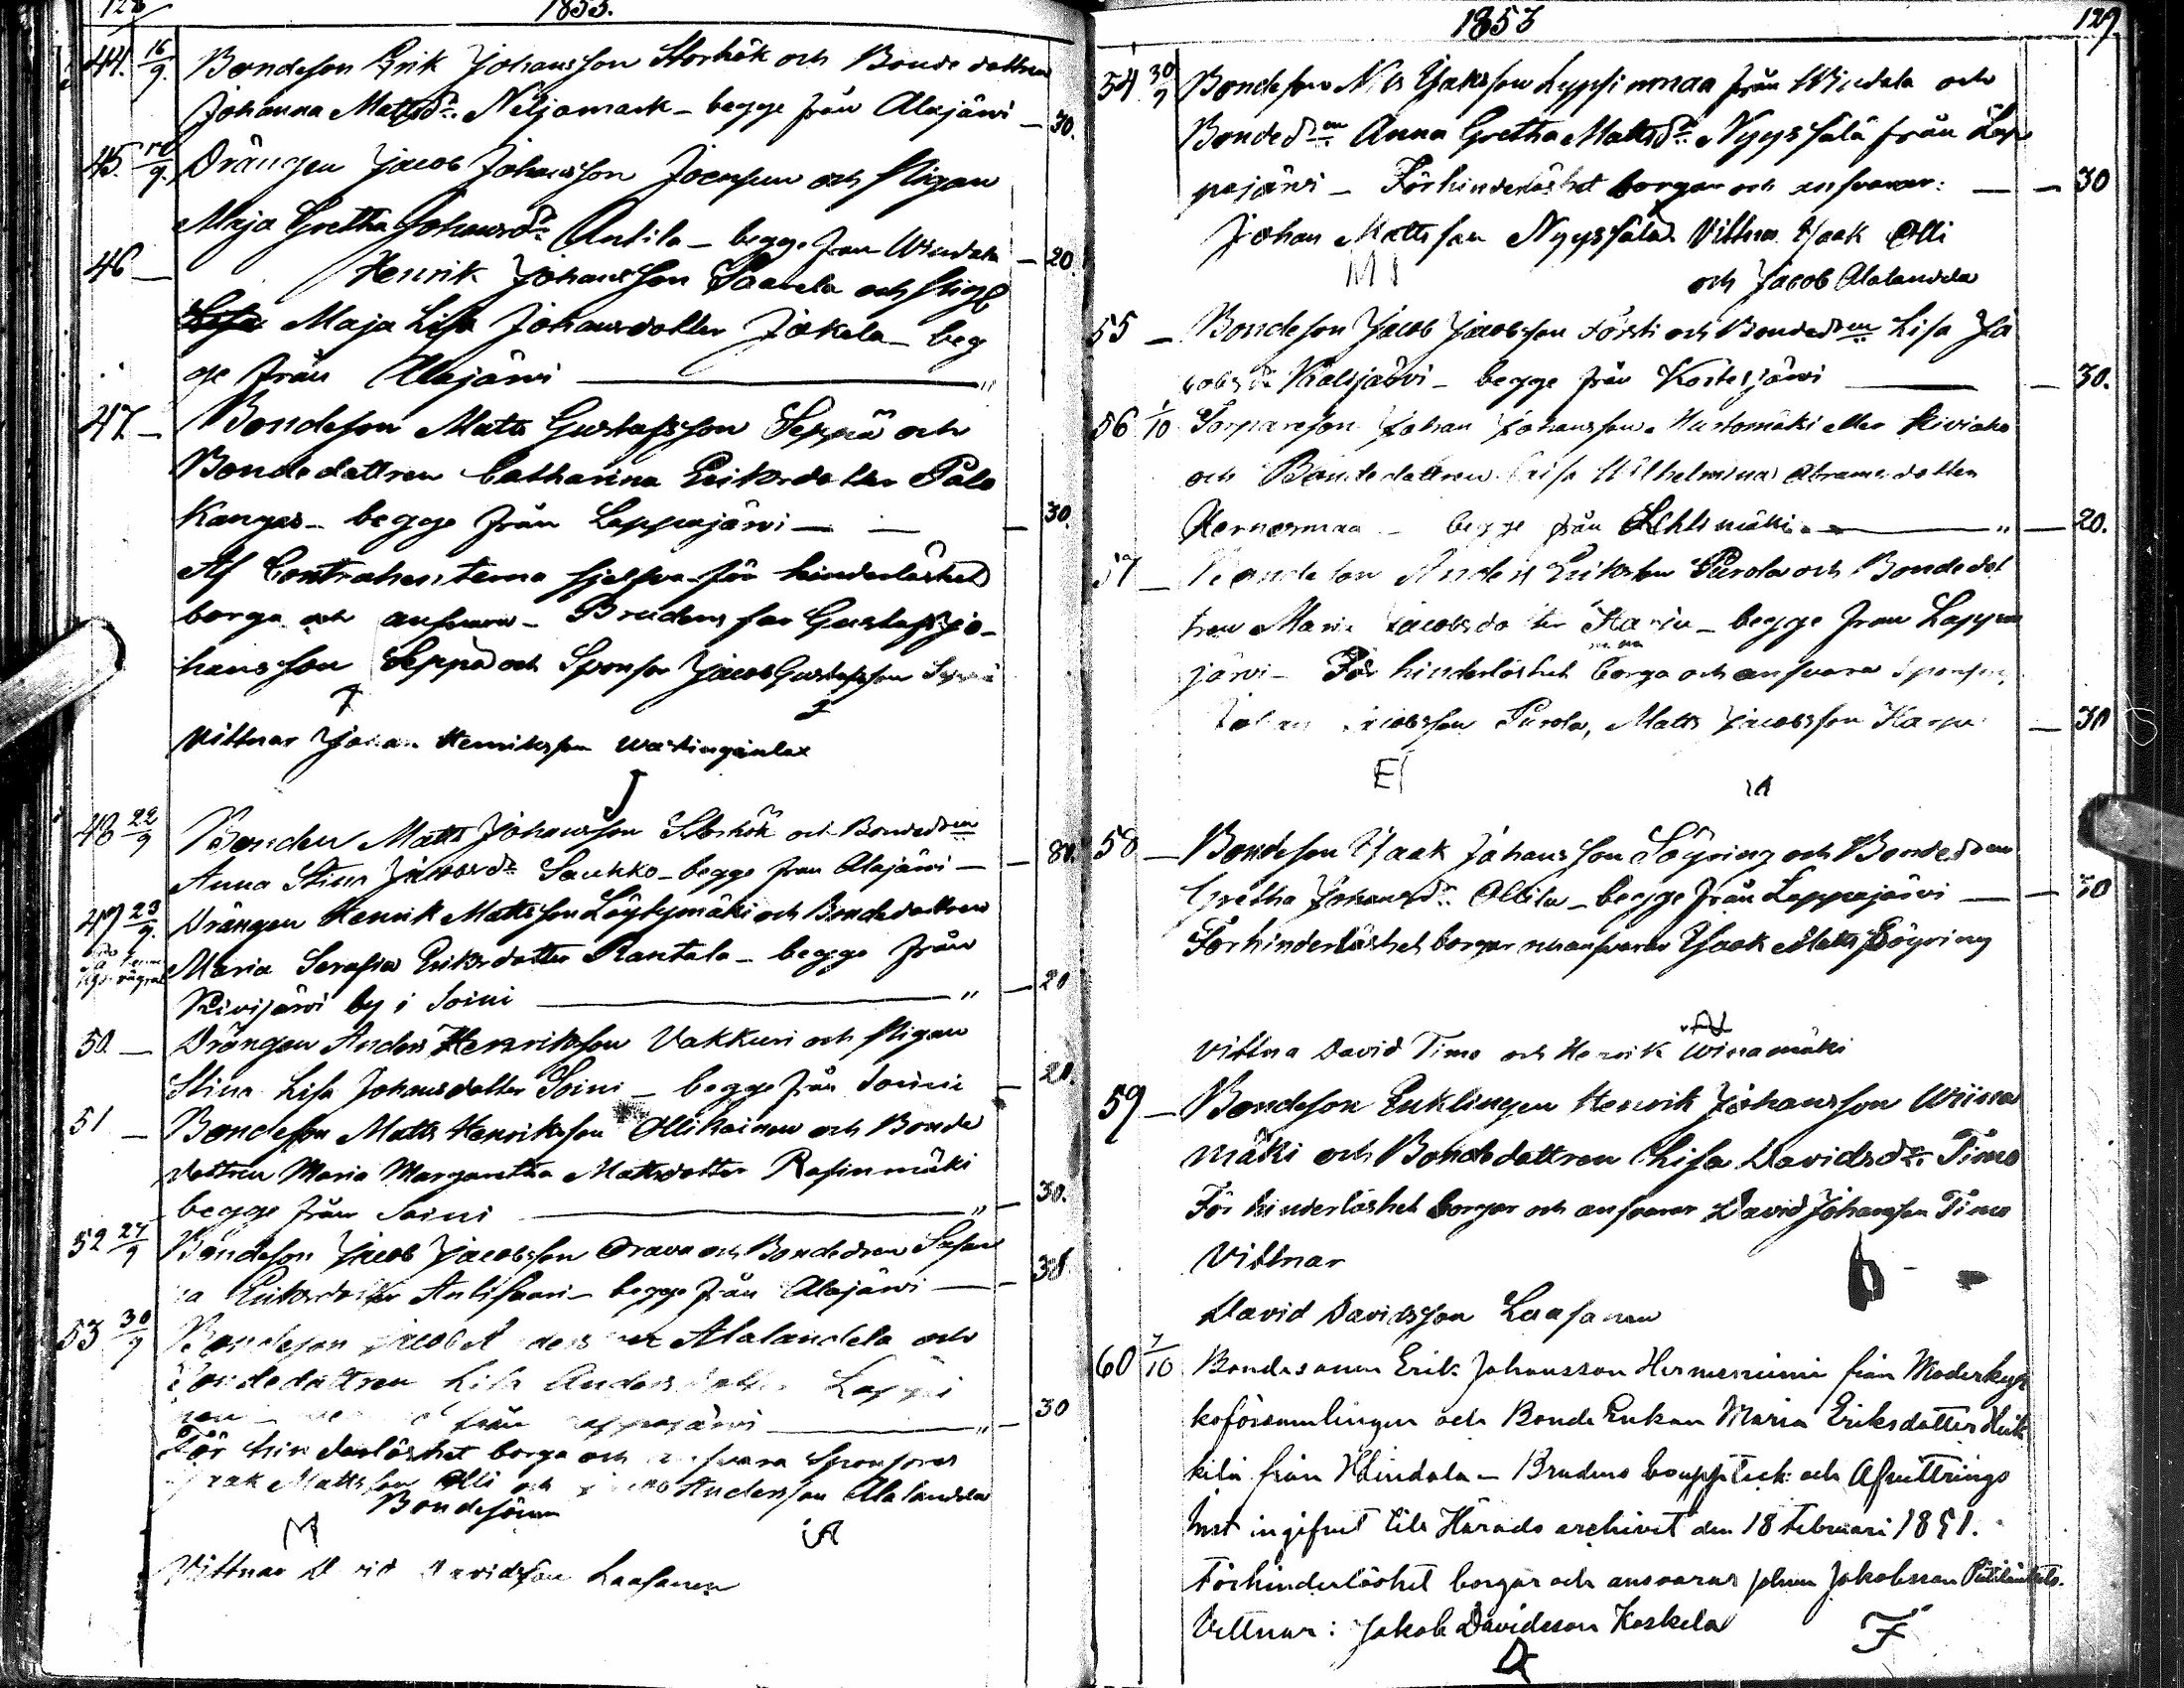 128 1853.
44. 16/9. Bondeson Erik Johansson Storhök och Bondedottren
Johanna Mattsdr. Neljämark - begge från Alajärwi - 30.
45. /9. Drängen Jacob Johansson Joensuu och Pigan
Maja Gretha Johansdr Antila - begge från Windala - 20
46 - Henrik Johansson Saarela och Pig.
Maja Lisa Johansdotter Jokela - beg
ge från Alajärwi - "
47. - Bondeson Matts Gustafsson Seppä och
Bondedottren Catharina Eriksdotter Palo
Kangas - begge från Lappajärwi - - 30.
Af Contrahenterna sjelfva för hinderlöshet
borga och ansvara - Brudens far Gustaf Jo-
hansson Seppä och Sponsor Jacob Gustafsson Seppä
Vittnar Johan Henriksson
48 22/9 Bonden Matts Johansson Storhök och Bondedren
Anna Stina Jacobsdr Saukko - begge från Alajärwi - 80.
49 23/9. Drängen Henrik Mattsson Löytymäki och Bondedottren
Maria Serafia Eriksdotter Rantala - begge från
Kivijärwi by i Soini " - 20
50. - Drängen Anders Henriksson Vakkuri och Pigan
Stina Lisa Johansdotter Soini - begge från Soini - 20.
51 - Bondeson Matts Henriksson Ollikainen och Bonde
dottren Maria Margaretha Mattsdotter Rasinmäki
begge från Soini " - 30.
52 27/9 Bondeson Jacob Jacobsson Orava och Bondedren Susan
na Eriksdotter Antisaari - begge från Alajärwi - 30
53 30/9 Bondeson Jacob Alalandela och
Bondedottren Lisa Anders
från Lappajärwi " - 30
För hinderlöshet borga och ansvara Sponsores
Isak Mattsson Olli och Andersson Alalandela
Bondesöner
Vittnar David Davidsson Laasanen
1853 129.
54 30/9 Bondeson Nils Isaksson Lyysinmaa från Windala och
Bondedren Anna Gretha Mattsdr Nyyssälä från Lap
pajärwi - Förhinderlöshet borgar och ansvarar: - - 30
Johan Mattsson Nyyssälä Vittna Isaak Olli
och Jacob Alalandela
55 - Bondeson Jacob Jacobsson Försti och Bondedren Lisa Ja
cobsdr Kalijärvi - begge från Kortesjärwi - 30.
56 1/10 Torpareson Johan Johansson Hartomäki eller Kiviaho
och Bondedottren Wilhelmina Abramsdotter
Hernesmaa - begge från Lehtimäki " - 20.
57 - Bondeson Anders Eriksson Purola och Bondedot
tren Maria Jacobsdotter Karju - begge från Lappa
järvi - För hinderlöshet borga och ansvara Sponsor,
Johan Jacobsson Purola, Matts Jacobsson Karju - 30
58 - Bondeson Isaak Johansson Sögring och Bondedren
Gretha Johansdr Ollila - begge från Lappajärvi - - 30
Förhinderlöshet borgar Isaak Matts Sögring
Vittna David Timo och Henrik Winamäki
59 - Bondeson Enklingen Henrik Johansson Wiina
mäki och Bondedottren Lisa Davidsdr. Timo
För hinderlöshet borgar och ansvarar David Johansson Timo
Vittnar
David Davidsson Laasanen
60 7/10 Bondesonen Erik Johansson Hernesniemi från Moderkyr
koförsamlingen och Bonde Enkan Maria Eriksdotter Heik
kilä från Windala - Brudens bouppteck: och Afvittrings
Inst ingifvet till Härads archivet den 18 Februari 1851.
Förhinderlöshet borgar och ansvarar Johan Jakobsson
Vittnar: Jakob Davidsson Koskela